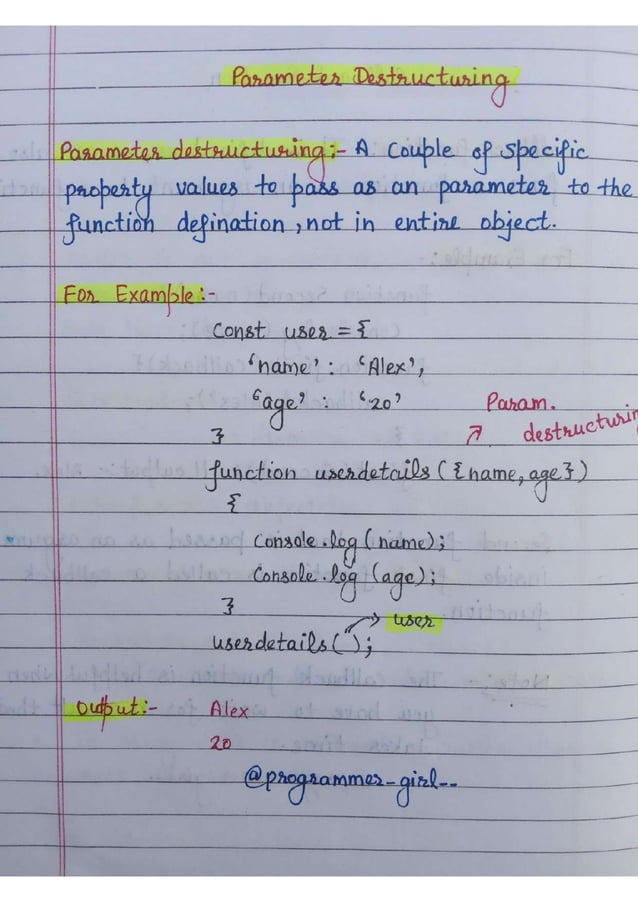 Parameter Destructuring
Parameter destructuring:- A Couple of specific
property values to pass as an parameter to the
function defination, not in entire object.
For Example:-
Const user = {
'name' : 'Alex',
'age' : '20'
}
Param.
destructuring
function userdetails ({name, age})
{
Console.log (name);
Console.log (age);
}
user
userdetails( );
Output:- Alex
20
@programmer_girl--